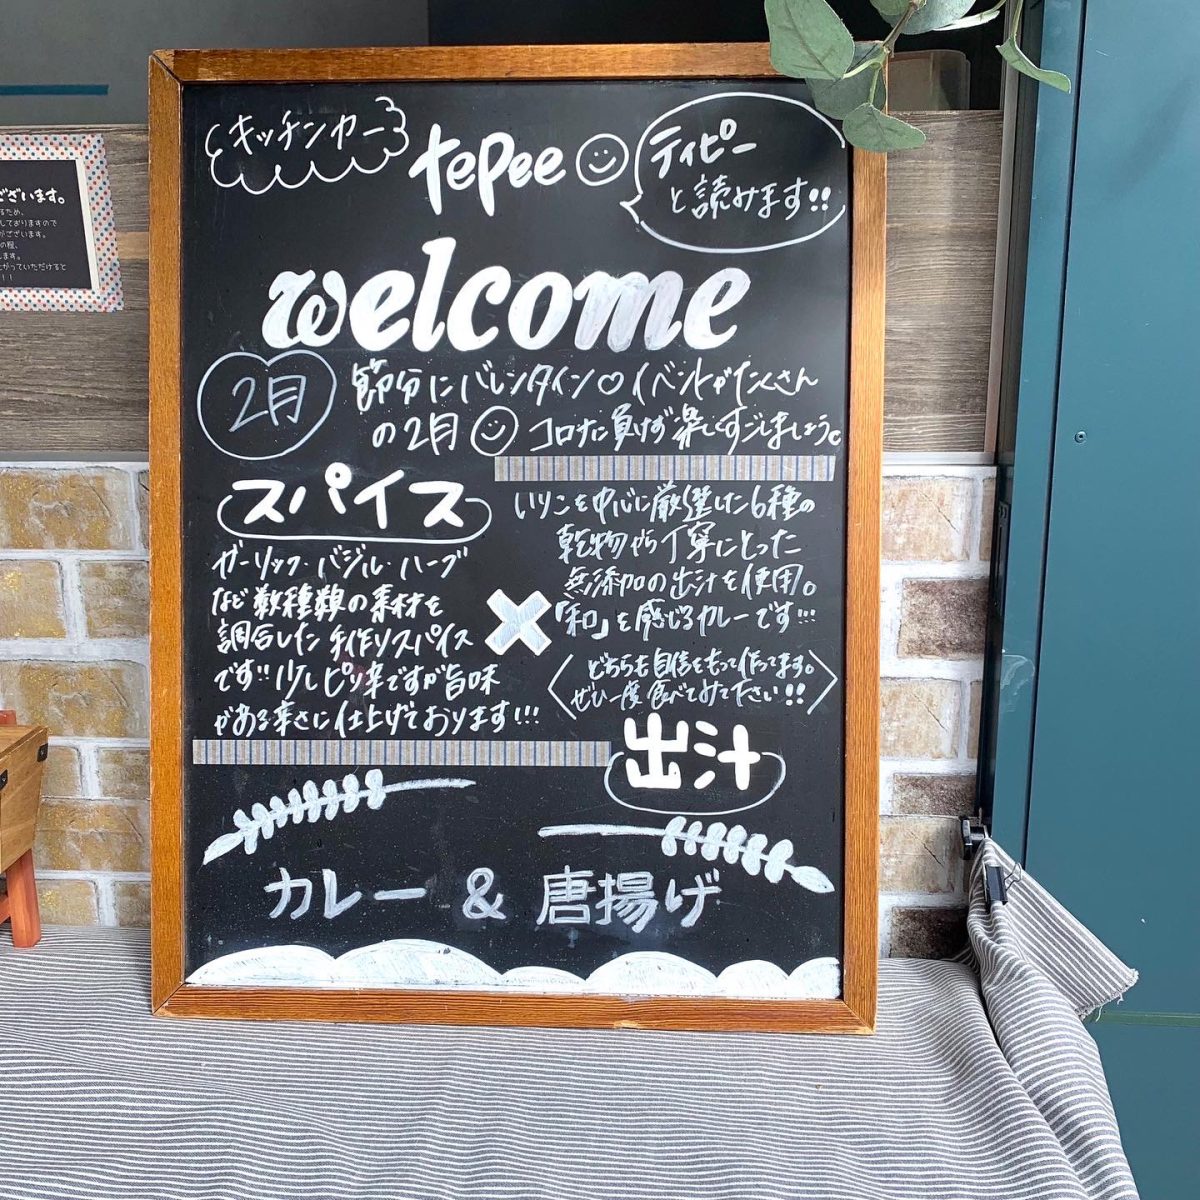 キッチンカー
tepee
ティピー
と読みます!!
welcome
2月
節分にバレンタイン♡イベントがたくさん
の2月
コロナに負けず楽しくすごしましょう。
スパイス
ガーリック・バジル・ハーブ
など数種類の素材を
調合した手作りスパイス
です!!少しピリ辛ですが旨味
がある辛さに仕上げております!!!
×
いりこを中心に厳選した6種の
乾物から丁寧にとった
無添加の出汁を使用。
「和」を感じるカレーです!!!
〈どちらも自信をもって作ってます。
ぜひ一度食べてみて下さい!!〉
出汁
カレー & 唐揚げ
ございます。
るため、
しておりますので
がございます。
の程、
します。
がっていただけると
!!